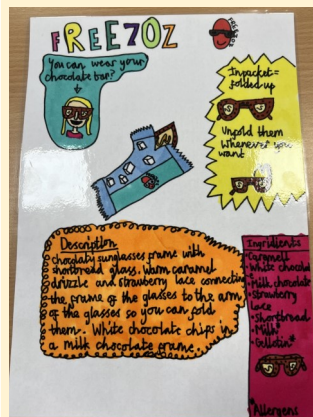 FREE7OZ
FREE7OZ
You can wear your
chocolate bar?
In packet =
folded up
Unfold them
whenever you
want
Description
chocolaty sunglasses frame with
shortbread glass, warm caramel
drizzle and strawberry lace connecting
the frame of the glasses to the arm
of the glasses so you can fold
them. White chocolate chips in
a milk chocolate frame.
Ingridients
•Caramell
•White chocolat
•Milk chocolate
•Strawberry
lace
•Shortbread
•Milk*
•Gelletin*
*Allergens